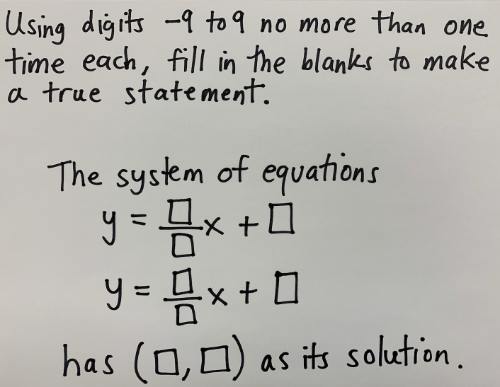 Using digits -9 to 9 no more than one
time each, fill in the blanks to make
a true statement.
The system of equations
y = □/□ x + □
y = □/□ x + □
has (□, □) as its solution.